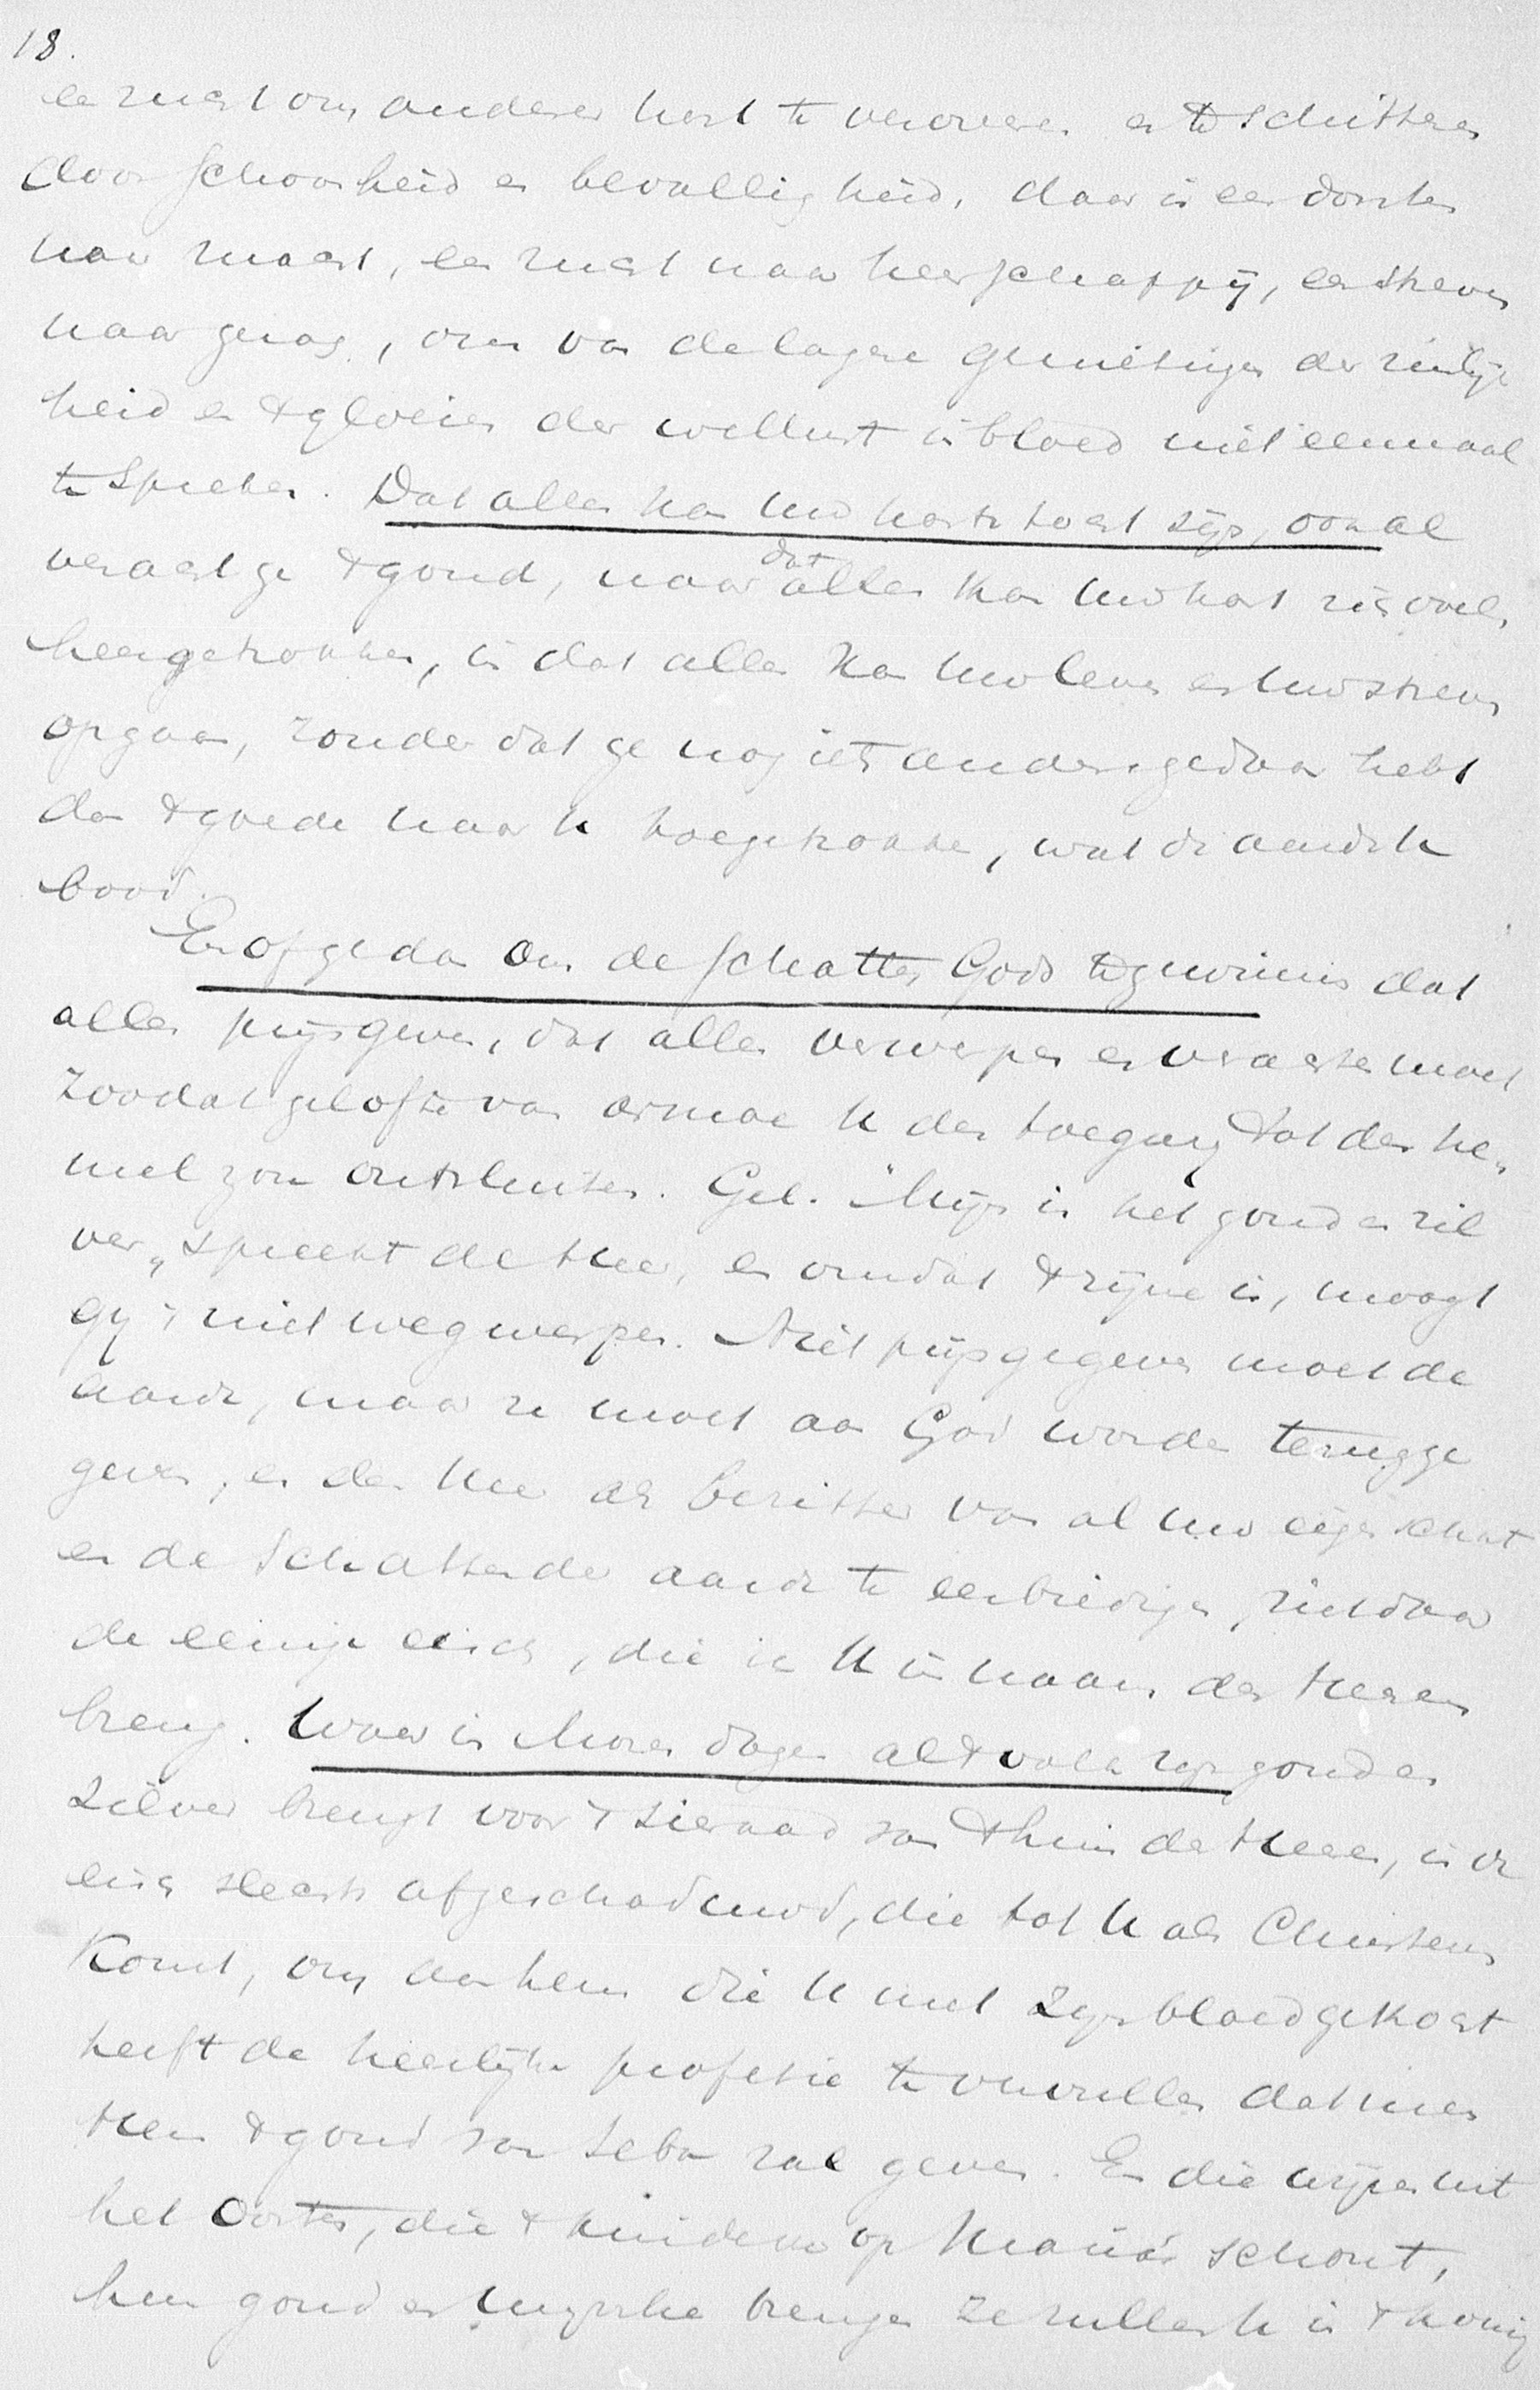 18.
een zucht om anderer hart te veroveren en te schitteren
door schoonheid en bevalligheid, daar is een dorsten
naar macht, een zucht naar heerschappij, een streven
naar genot, om van de lagere genietingen der zinlijk
heid en 't gloeien der wellust in 't bloed niet eenmaal
te spreken. Dat alles kan uw hartstocht zijn, ook al
veracht ge 't goud, naar dat alles kan uw hart zich voelen
heengetrokken, in dat alles kan uw leven en uw streven
opgaan, zonder dat ge nog iets anders gedaan hebt
dan 't goede naar u toegetrokken, wat de aarde u
bood.
En of ge dan om de schatten Gods te gewinnen dat
alles prijsgeven, dat alles verwerpen en verachten moet
zoodat gelofte van armoe u den toegang tot den he„
mel zou ontsluiten. Gel. "Mijn is het goud en zil
ver„ spreekt de Heer, en omdat 't zijne is, moogt
gij 't niet wegwerpen. Niet prijsgegeven moet de
aarde, maar ze moet aan God worden terugge
geven, en den Heer als bezitter van al uw eigen schat
en de schatten der aarde te eerbiedigen, ziedaar
de eenige eisch, die ik U in naam des Heeren
breng. Waar in Mozes dagen al 't volk zijn goud en
zilver brengt voor 't sieraad van 't huis des Heeren, is de
eisch slechts afgeschaduwd, die tot U als Christenen
komt, om aan hem die U met zijn bloed gekocht
heeft de heerlijke profetie te vervullen dat men
Hem 't goud van Seba zal geven. En die wijzen uit
het Oosten, die 't kindeke op Maria's schoot,
hun goud en myrrhe brengen ze zullen U in 't koning